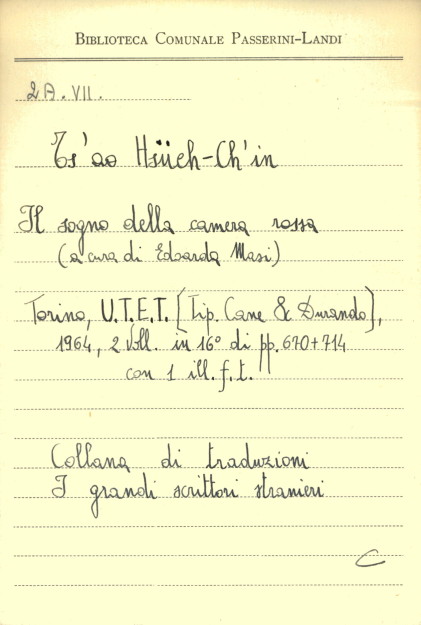 BIBLIOTECA COMUNALE PASSERINI-LANDI
2A.VII.
Ts'ao Hsüeh-Ch'in
Il sogno della camera rossa
(a cura di Edoarda Masi)
Torino, U.T.E.T. [Tip. Cane & Durando],
1964, 2 voll. in 16° di pp. 670+714
con 1 ill. f. t.
Collana di traduzioni
I grandi scrittori stranieri
C